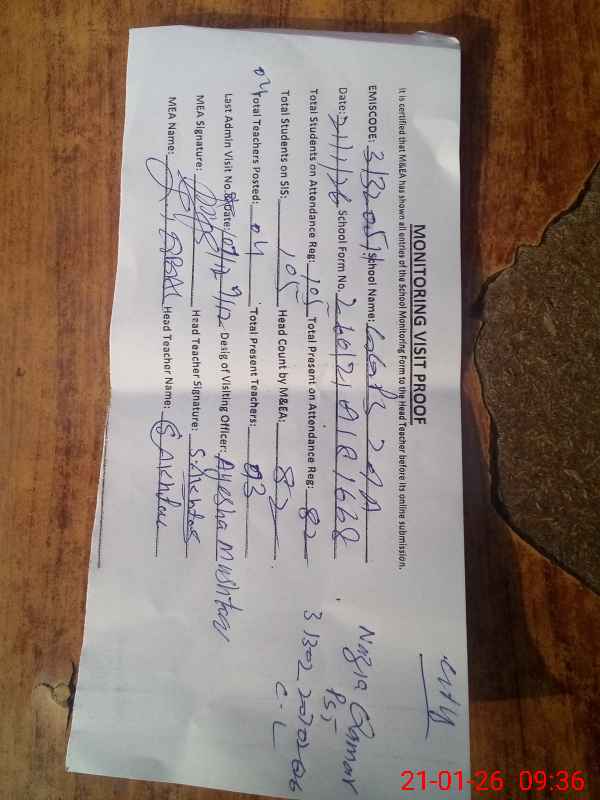 city
MONITORING VISIT PROOF
It is certified that M&EA has shown all entries of the School Monitoring Form to the Head Teacher before its online submission.
EMISCODE: School Name: GGPS
Date: 21/1/26 School Form No.
Total Students on Attendance Reg: 105 Total Present on Attendance Reg: 82
Total Students on SIS: 105 Head Count by M&EA: 82
04 Total Teachers Posted: 04 Total Present Teachers: 03
Last Admin Visit No. & Date: Desig of Visiting Officer: Ayesha Mushtaq
MEA Signature: Head Teacher Signature: S. Akhtar
MEA Name: IQBAL Head Teacher Name: S Akhtar
Nazia
PST
C-L
21-01-26 09:36